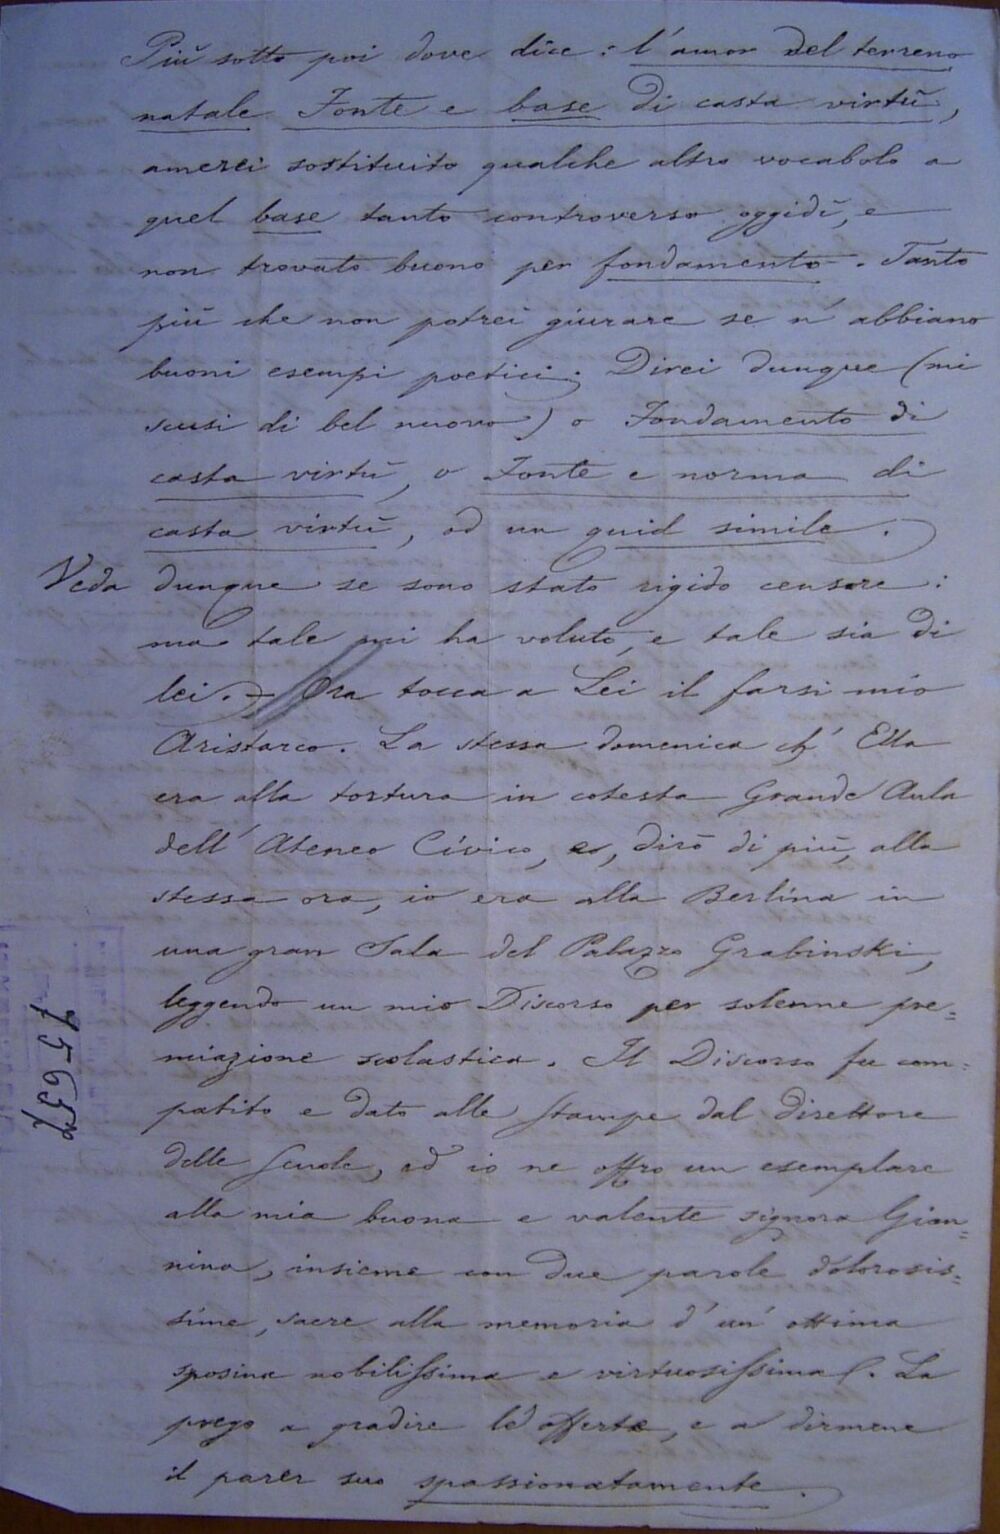 Più sotto poi dove dice: l'amor del terreno
natale Fonte e base di casta virtù,
amerei sostituito qualche altro vocabolo a
quel base tanto controverso oggidì, e
non trovato buono per fondamento. Tanto
più che non potrei giurare se n'abbiano
buoni esempi poetici. Direi dunque (mi
scusi di bel nuovo) o Fondamento di
casta virtù, o Fonte e norma di
casta virtù, od un quid simile.
Veda dunque se sono stato rigido censore:
ma tale mi ha voluto, e tale sia di
lei. Ora tocca a Lei il farsi mio
Aristarco. La stessa domenica ch'Ella
era alla tortura in cotesta Grande Aula
dell'Ateneo Civico, e, dirò di più, alla
stessa ora, io era alla Berlina in
una gran Sala del Palazzo Grabinski,
leggendo un mio Discorso per solenne pre=
miazione scolastica. Il Discorso fu com=
patito e dato alle stampe dal direttore
delle Scuole, ed io ne offro un esemplare
alla mia buona e valente signora Gian=
nina, insieme con due parole dolorosis=
sime, sacre alla memoria d'un'ottima
sposina nobilissima e virtuosissima. La
prego a gradire le offerte, e a dirmene
il parer suo spassionatamente.